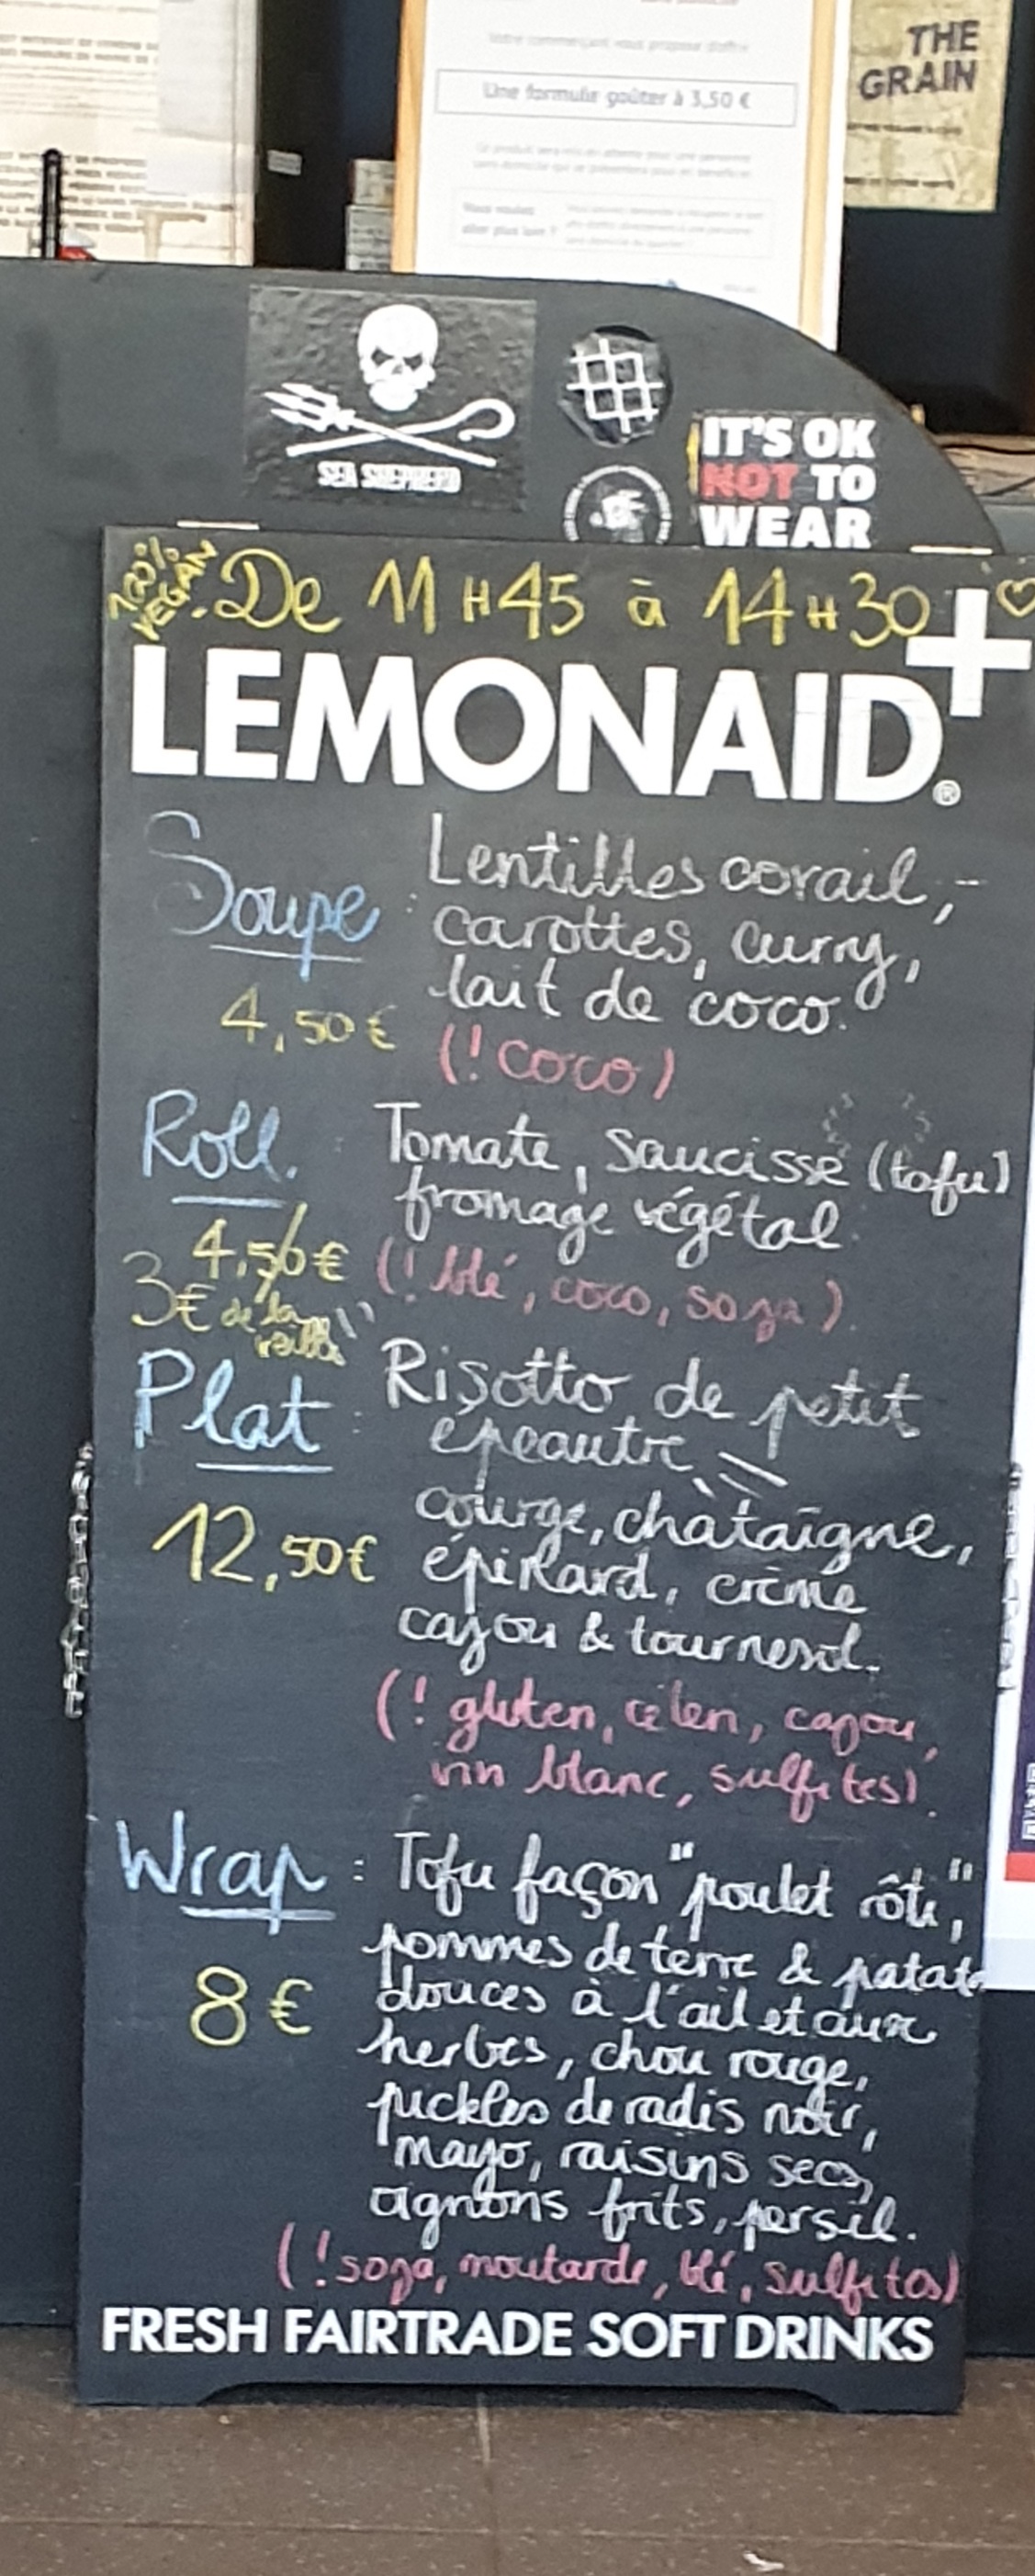 THE
GRAIN
Votre commerçant vous propose d'offrir
Une formule goûter à 3,50 €
Vous voulez
aller plus loin ?
SEA SHEPHERD
IT'S OK
NOT TO
WEAR
100%
VEGAN.
De 11H45 à 14H30
LEMONAID+®
Soupe : Lentilles corail,
carottes, curry,
lait de coco.
4,50€
(! coco)
Roll. : Tomate, saucisse (tofu)
fromage végétal
4,50€ (! blé, coco, soja).
3€ de la
veille
Plat : Risotto de petit
épeautre
12,50€ courge, chataîgne,
épinard, crème
cajou & tournesol.
(! gluten, céleri, cajou,
vin blanc, sulfites).
Wrap : Tofu façon "poulet rôti",
pommes de terre & patates
8€ douces à l'ail et aux
herbes, chou rouge,
pickles de radis noir,
mayo, raisins secs,
oignons frits, persil.
(! soja, moutarde, blé, sulfites)
FRESH FAIRTRADE SOFT DRINKS